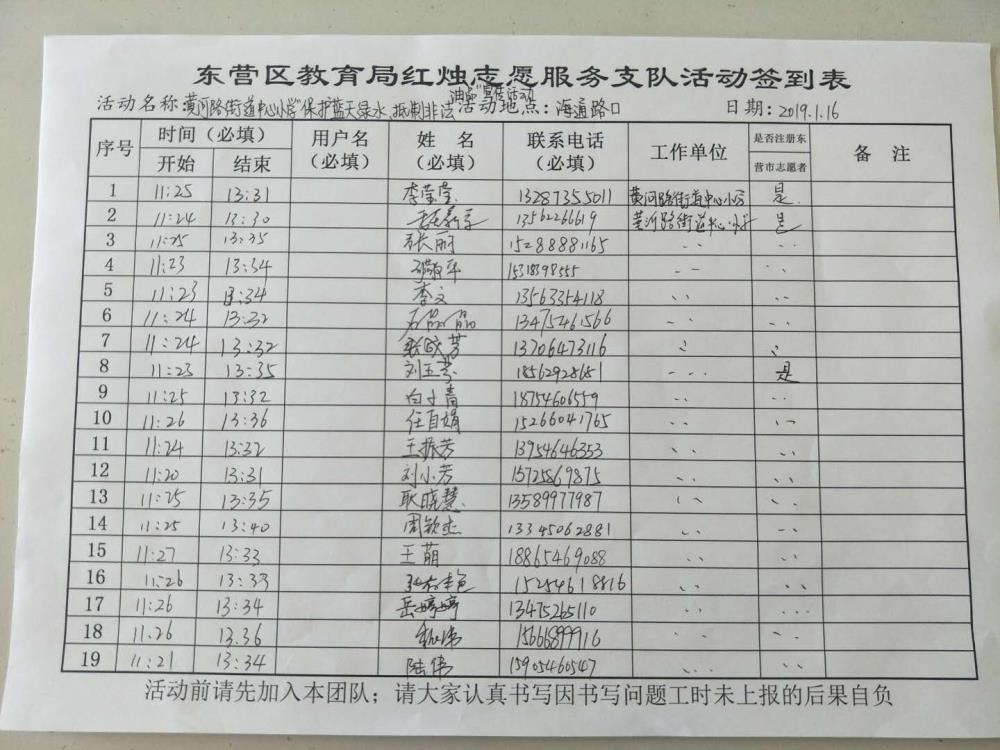 东营区教育局红烛志愿服务支队活动签到表
油品"宣传活动
活动名称 黄河路街道中心小学"保护蓝天绿水、抵制非法 活动地点：海通路口 日期：2019.1.16
序号 时间（必填） 用户名（必填） 姓 名（必填） 联系电话（必填） 工作单位 是否注册东营市志愿者 备 注
开始 结束
1 11:25 13:31 李莹莹 13287355011 黄河路街道中心小学 是
2 11:24 13:30 13562266619 黄河路街道中心小学 是
3 11:25 13:35 张丽 15288881165 、、 、、
4 11:23 13:34 15318398555 、、 、、
5 11:23 13:34 李文 13563354118 、、 、、
6 11:24 13:32 石晶晶 13475461566 、、 、、
7 11:24 13:32 张欣芳 13706473116 、、 、、
8 11:23 13:35 刘玉芬 18562928651 、、 是
9 11:25 13:32 白小青 18754606559 、、 、、
10 11:26 13:36 任自娟 15266041765 、、 、、
11 11:24 13:32 王振芳 13954646353 、、 、、
12 11:20 13:31 刘小芳 15725869875 、、 、、
13 11:25 13:35 耿晓慧 13589977987 、、 、、
14 11:25 13:40 周钦杰 13345062881 、、 、、
15 11:27 13:33 王萌 18865469088 、、 、、
16 11:26 13:33 15254618816 、、 、、
17 11:26 13:34 岳婷婷 13475265110 、、 、、
18 11.26 13.36 15666899916 、、 、、
19 11:21 13:34 陆伟 15905460547 、、 、、
活动前请先加入本团队；请大家认真书写因书写问题工时未上报的后果自负